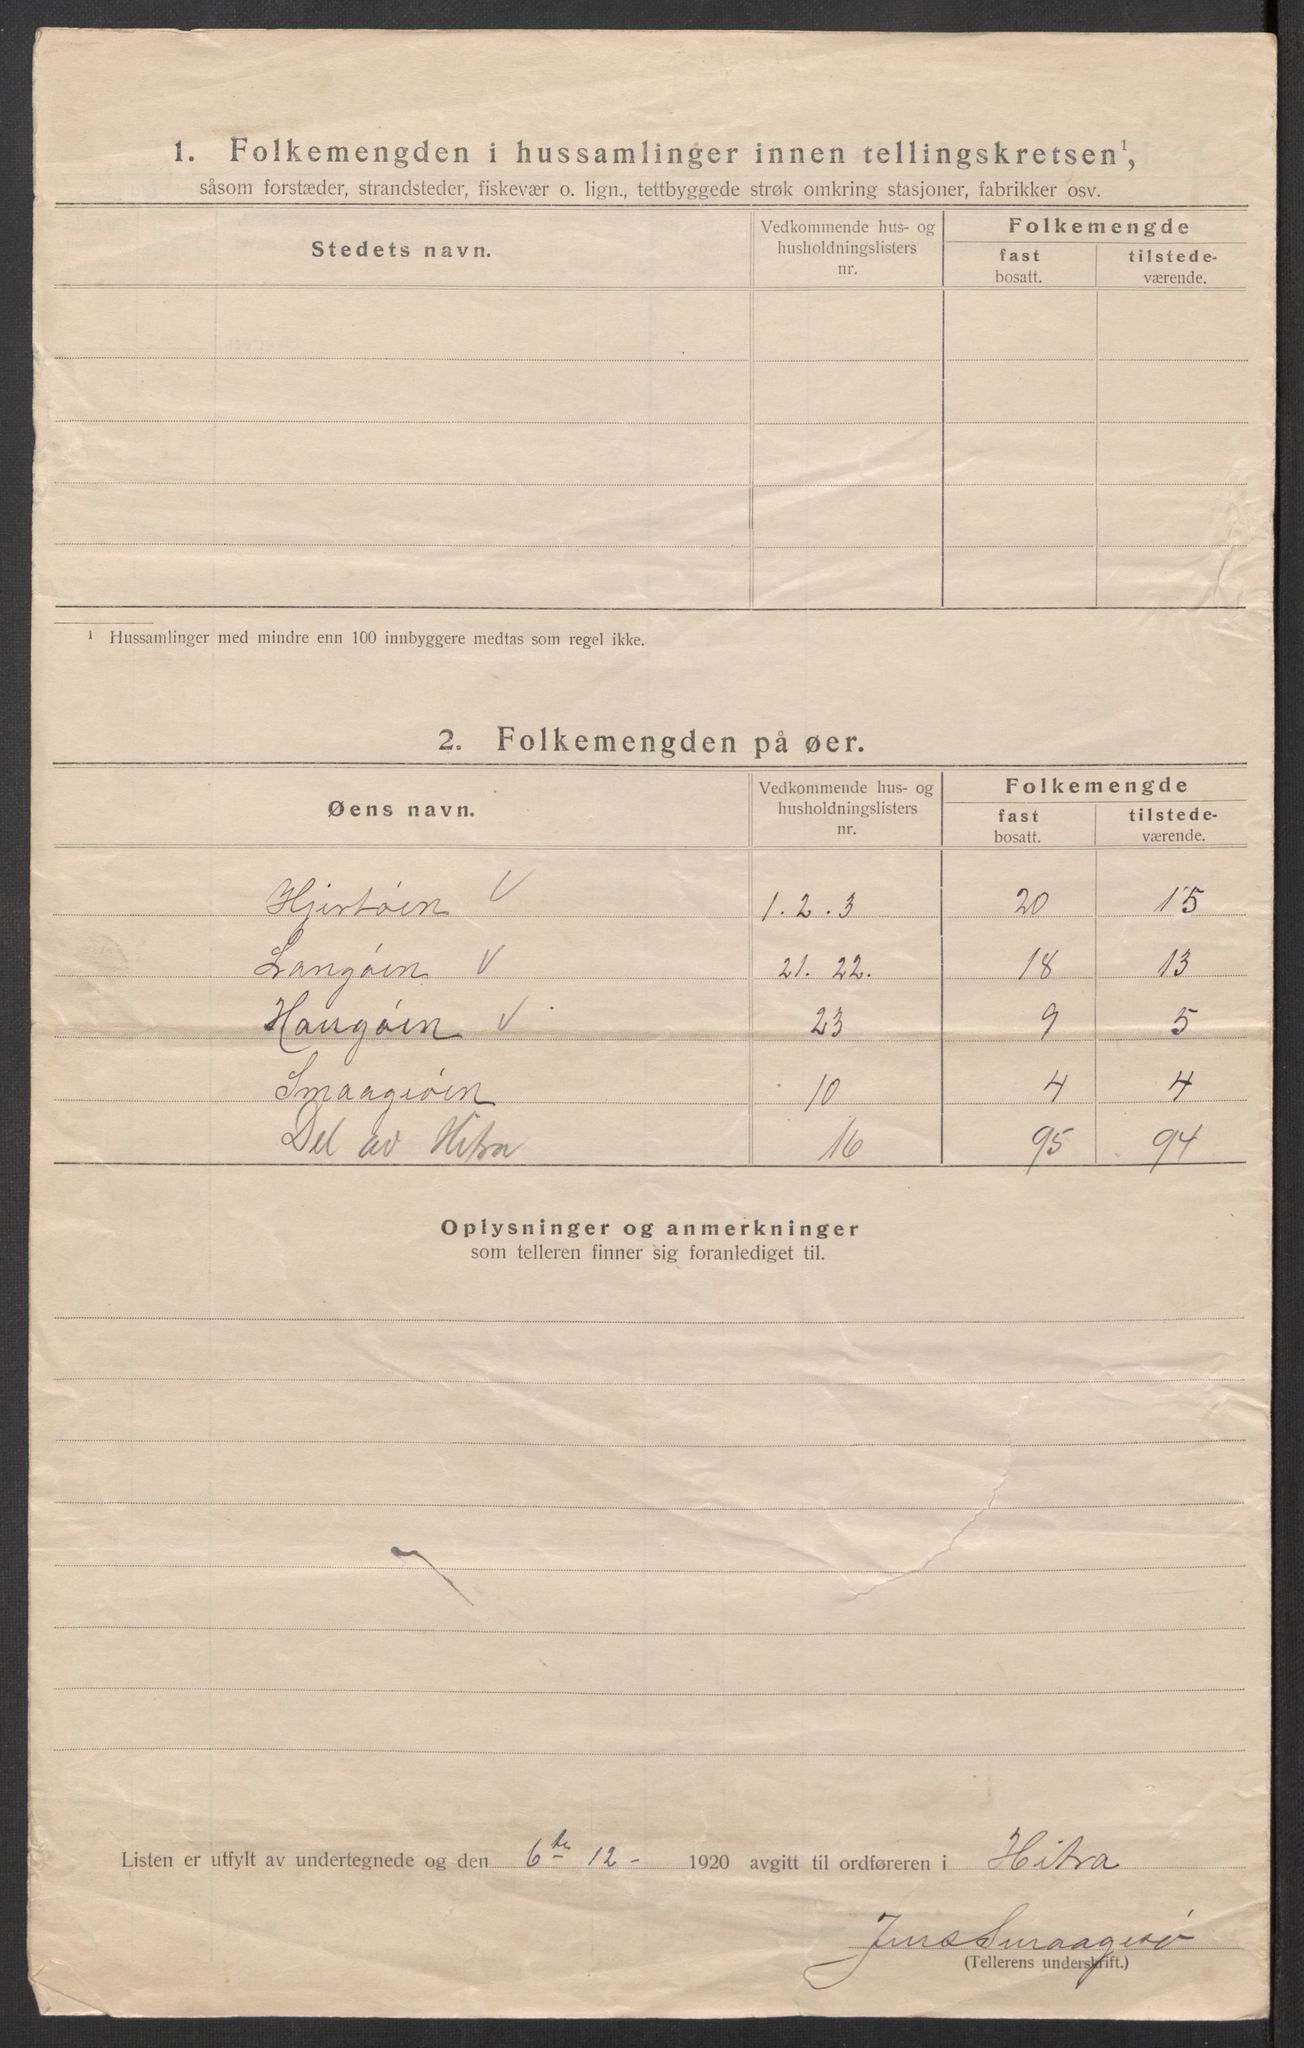 1. Folkemengden i hussamlinger innen tellingskretsen¹,
såsom forstæder, strandsteder, fiskevær o. lign., tettbyggede strøk omkring stasjoner, fabrikker osv.
Stedets navn. Vedkommende hus- og husholdningslisters nr. Folkemengde
fast bosatt. tilstede-værende.
¹ Hussamlinger med mindre enn 100 innbyggere medtas som regel ikke.
2. Folkemengden på øer.
Øens navn. Vedkommende hus- og husholdningslisters nr. Folkemengde
fast bosatt. tilstede-værende.
Hjertøen V 1. 2. 3 20 15
Langøen V 21. 22. 18 13
Haugøen V 23 9 5
Smaageøen 10 4 4
Del av Hitra 16 95 94
Oplysninger og anmerkninger
som telleren finner sig foranlediget til.
Listen er utfylt av undertegnede og den 6te 12- 1920 avgitt til ordføreren i Hitra
Jens Smaagesø
(Tellerens underskrift.)